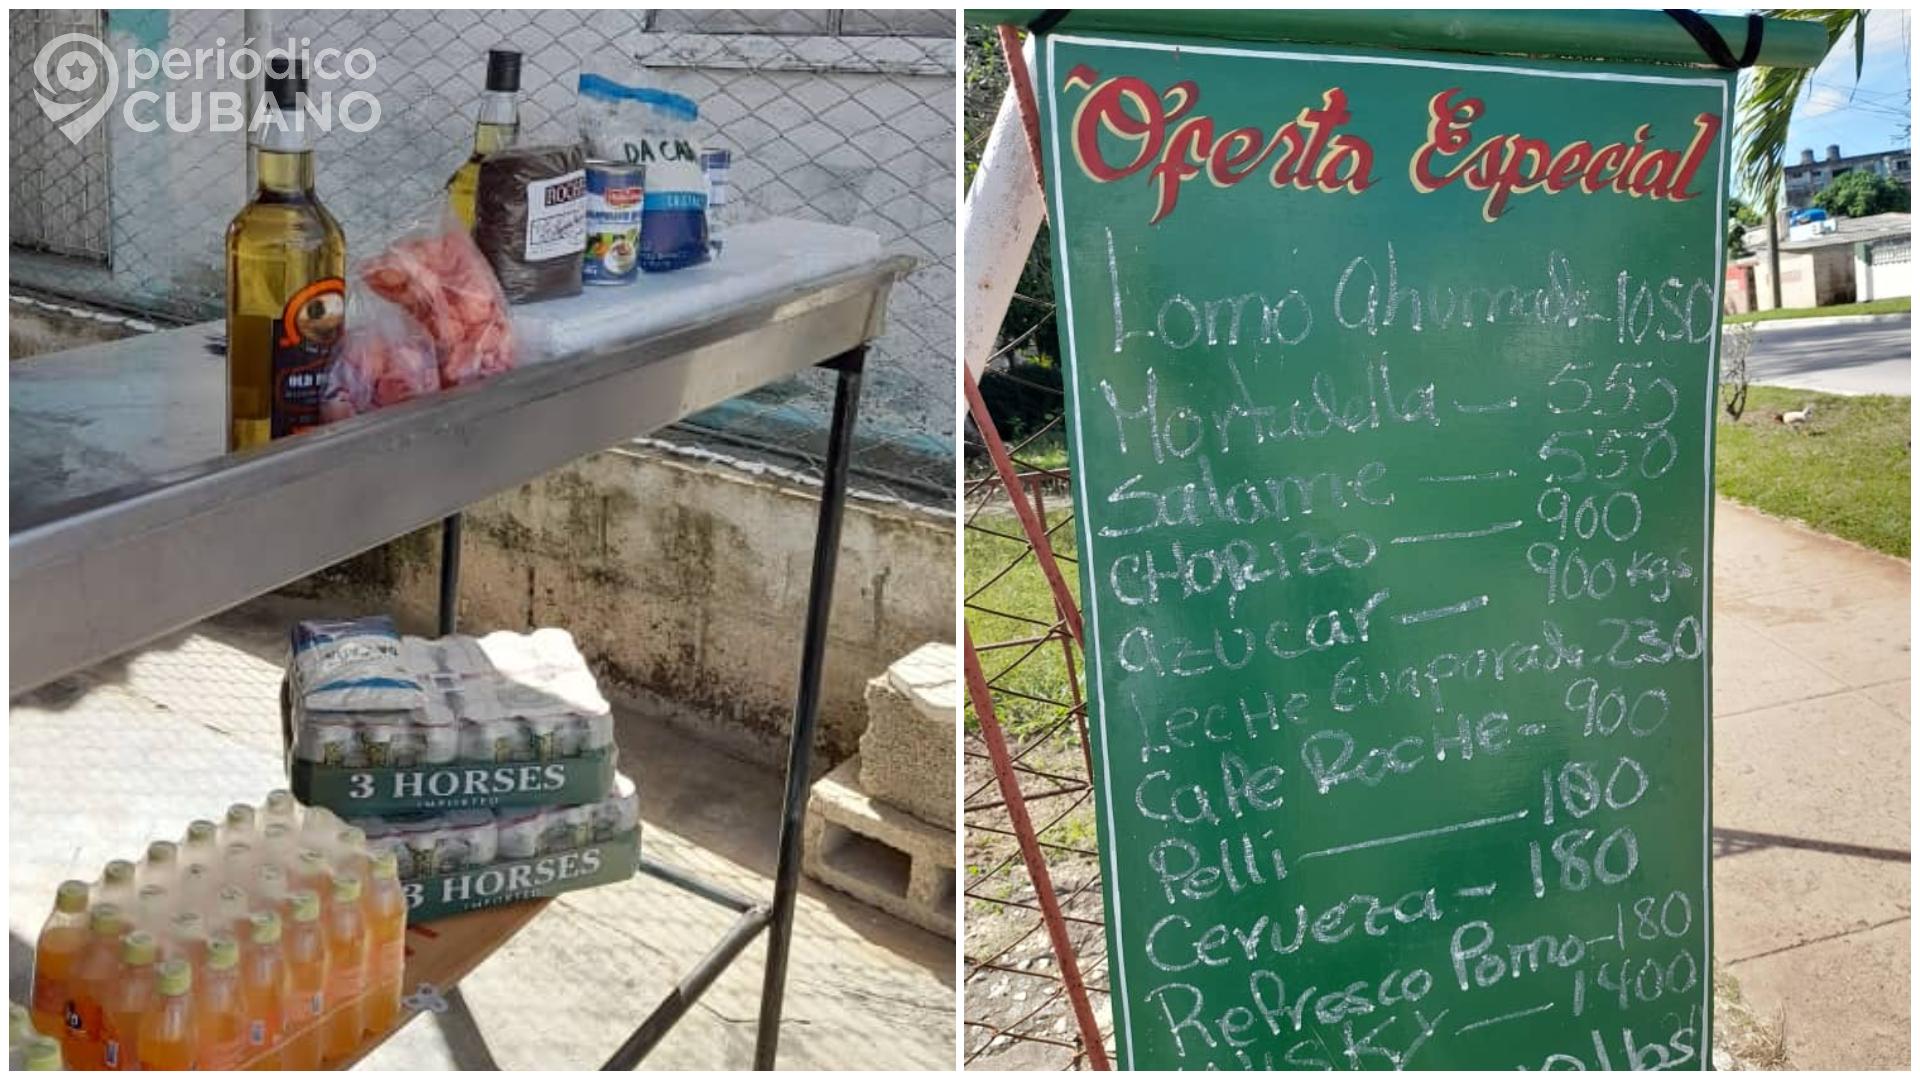 periódico
CUBANO
DA CAR
ROCHE
CRISTAL
OLD
3 HORSES
IMPORTED
3 HORSES
IMPORTED
Oferta Especial
Lomo ahumado - 1050
Mortadella - 550
Salame - 550
CHORIZO - 900
azucar - 900 kgs,
LecHe Evaporada - 230
Cafe RocHe - 900
Pelli - 180
Cerveza - 180
Refresco Pomo - 180
WISKY - 1400
lbs